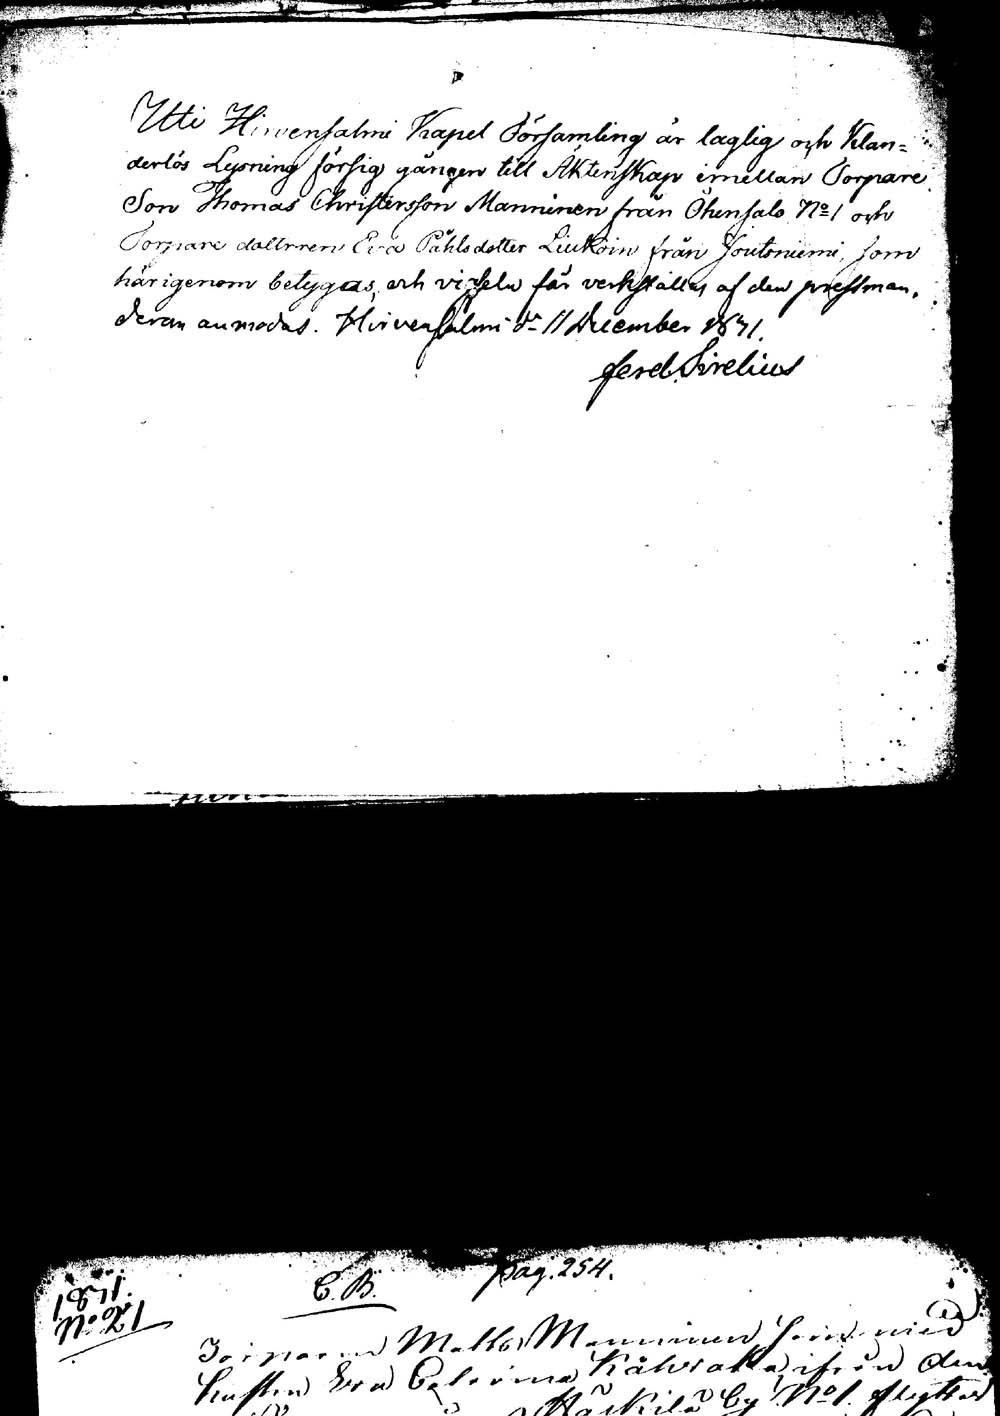 Uti Hirvensalmi Kapel Församling är laglig och Klan=
derlös Lysning försig gången till Äktenskap imellan Torpare
Son Thomas Christersson Manninen från Öhensalo No 1 och
Torpare dottren Eva Påhlsdotter Liukoin från Joutsniemi, som
härigenom betygas, och vigseln får verkställas af den prestman,
deran anmodas. Hirvensalmi d. 11 December 1871.
Ferd. Sirelius
1871.
No 21
C. B.
pag. 254.
Manninen som med
Eva ifrån den
by No 1.